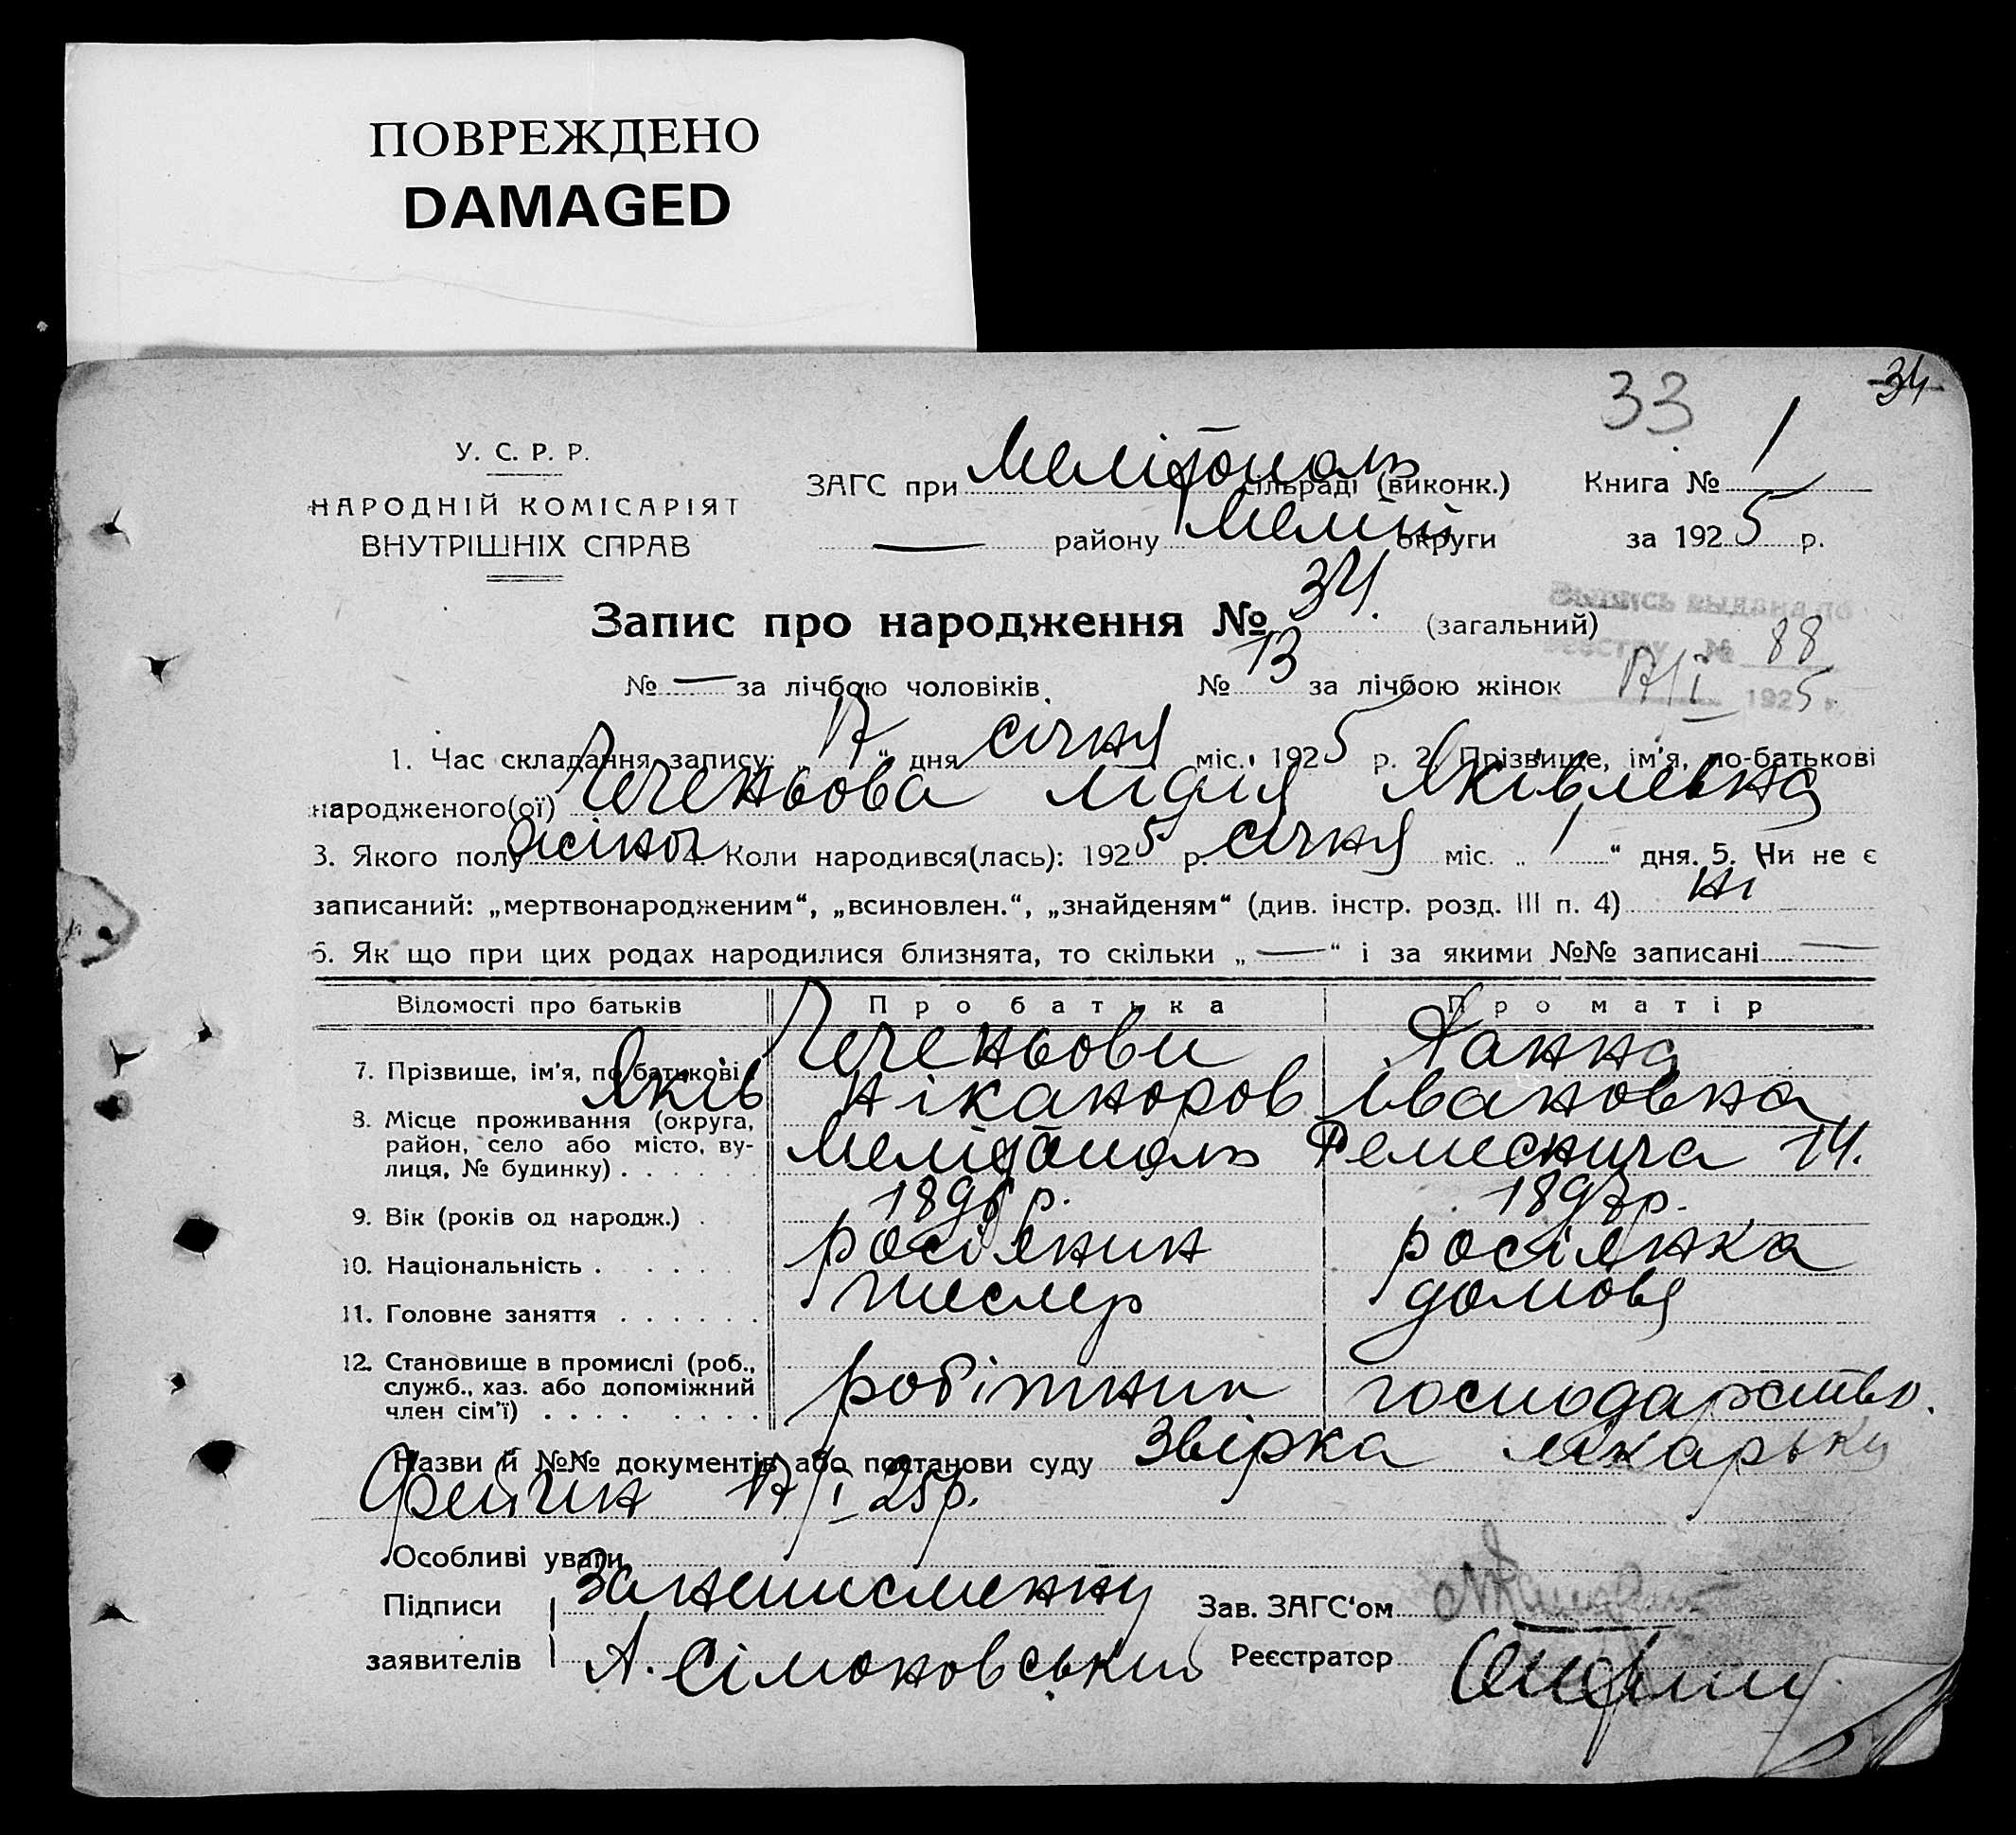 ПОВРЕЖДЕНО
DAMAGED
33
34
У. С. Р. Р.
НАРОДНІЙ КОМІСАРІЯТ
ВНУТРІШНІХ СПРАВ
ЗАГС при Мелітополь сільраді (виконк.) Книга № 1
— району Меліт округи за 1925 р.
Запис про народження № 34. (загальний)
Выпись выдана по
реестру № 88
17/I 1925 г.
№ — за лічбою чоловіків. № 13 за лічбою жінок
1. Час складання запису: „17“ дня січня міс. 1925 р. 2. Прізвище, ім'я, по-батькові
народженого(ої) Чеченьова Лідія Яківлевна
3. Якого полу жіноч 4. Коли народився(лась): 1925 р. січня міс. „1“ дня. 5. Чи не є
записаний: „мертвонародженим“, „всиновлен.“, „знайденям“ (див. інстр. розд. III п. 4) ні
6. Як що при цих родах народилися близнята, то скільки „—“ і за якими №№ записані —
Відомості про батьків Про батька Про матір
7. Прізвище, ім'я, по батькові Чеченьови Ганна
Яків Ніканоров Івановна
8. Місце проживання (округа,
район, село або місто, ву-
лиця, № будинку) . Мелітополь 14.
9. Вік (років од народж.) . р. 1897р.
10. Національність . росіянин росіянка
11. Головне заняття . тесляр домове
12. Становище в промислі (роб.,
служб., хаз. або допоміжний
член сім'ї) . робітник господарство.
Назви й №№ документів або постанови суду Звірка лікарьки
17/I 25р.
Особливі уваги
Підписи За неписменну Зав. ЗАГС'ом
заявителів А. Сімоновський Реєстратор